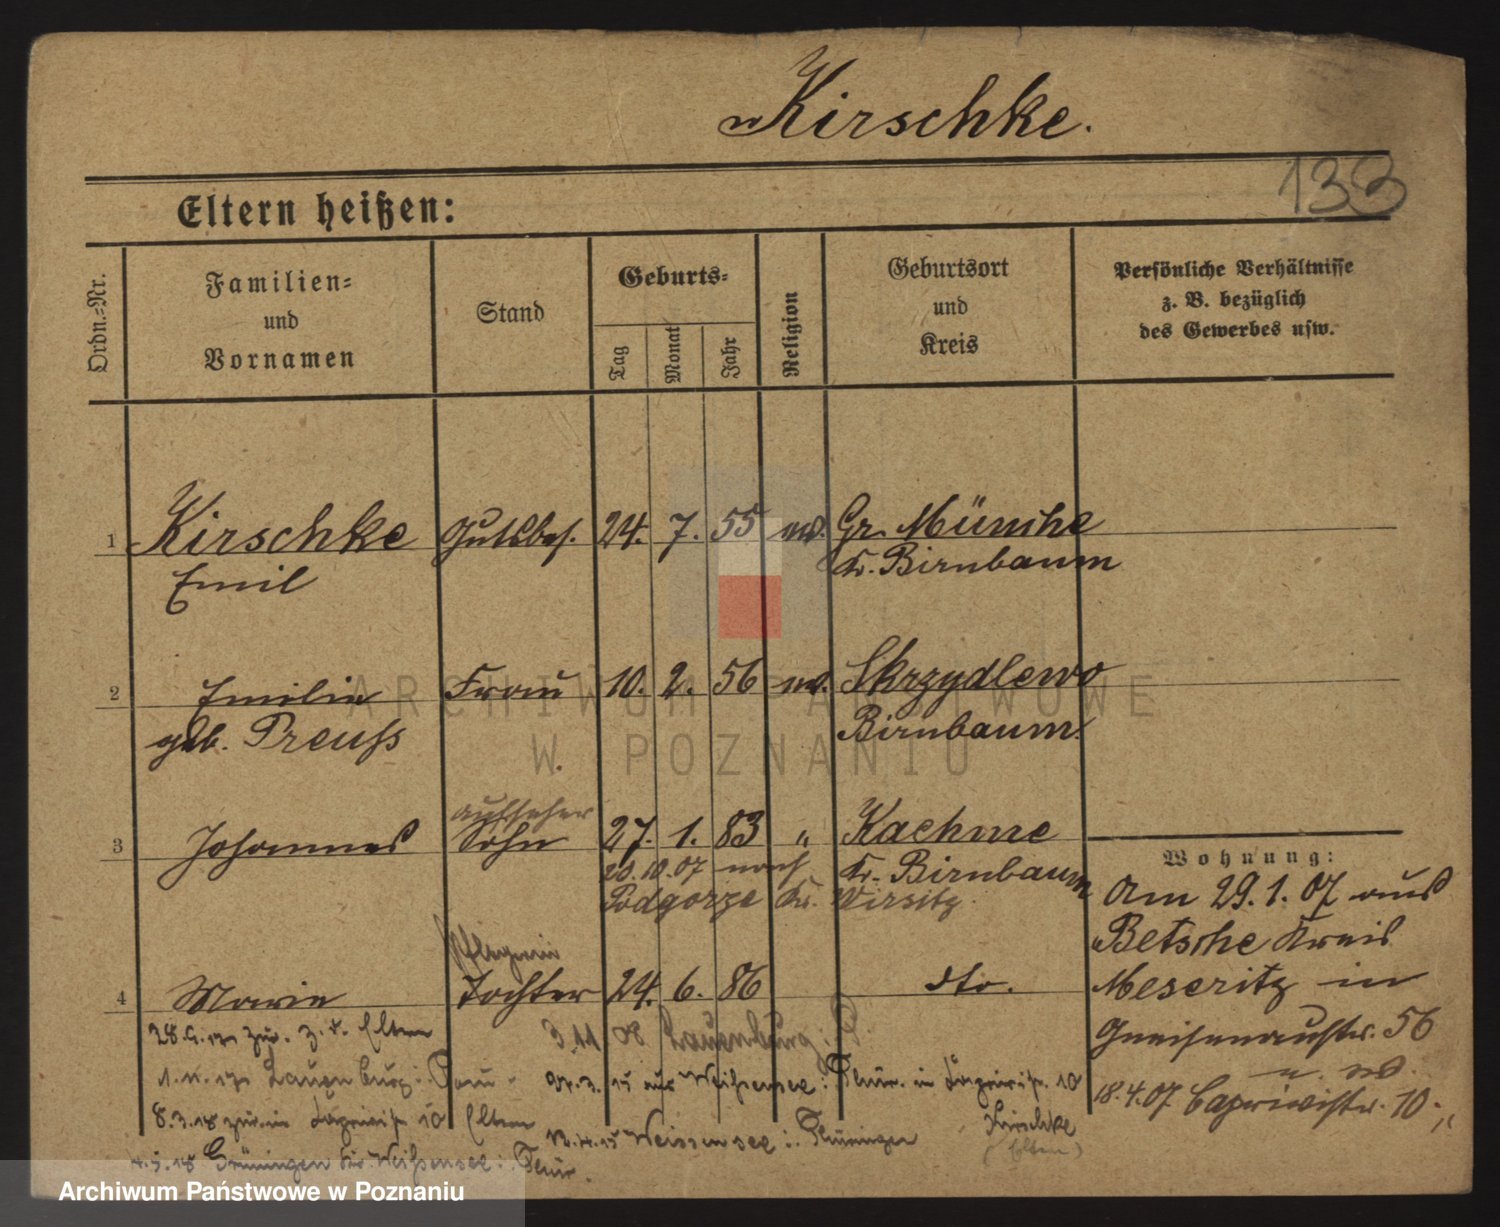 Kirschke.
133
Eltern heißen:
Ordn.=Nr.
Familien=
und
Vornamen
Stand
Geburts=
Tag
Monat
Jahr
Religion
Geburtsort
und
Kreis
Persönliche Verhältnisse
z. B. bezüglich
des Gewerbes usw.
1 Kirschke Gutsbes. 24. 7. 55 ev. Gr. Münche
Emil Kr. Birnbaum
2 Emilie Frau 10. 2. 56 ev. Skrzydlewo
geb. Preuß Birnbaum
Aufseher
3 Johannes Sohn 27. 1. 83 " Kaehme
20.10.07 nach Kr. Birnbaum
Podgorze Kr. Wirsitz
Wohnung:
Am 29.1.07 aus
Betsche Kreis
Meseritz in
Gneisenaustr. 56
18.4.07 Caprivistr. 10
Pflegerin
4 Marie Tochter 24. 6. 86 dto.
zur. z. d. Eltern
3.11 08 Lauenburg i. P.
Lauenburg i. Pom
15 aus Weißensee i. Thür. in Caprivistr. 10
8.3.18 zur. in Caprivistr 10 Eltern
Kirschke
(Eltern)
Weissensee i. Thüringen
4.5.18 Grüningen Kr. Weißensee i. Thür.
ARCHIWUM PAŃSTWOWE
W POZNANIU
Archiwum Państwowe w Poznaniu